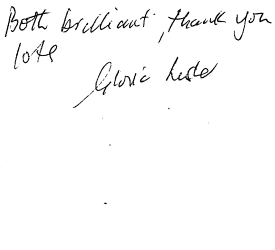 Both brilliant, thank you
lots
Gloria